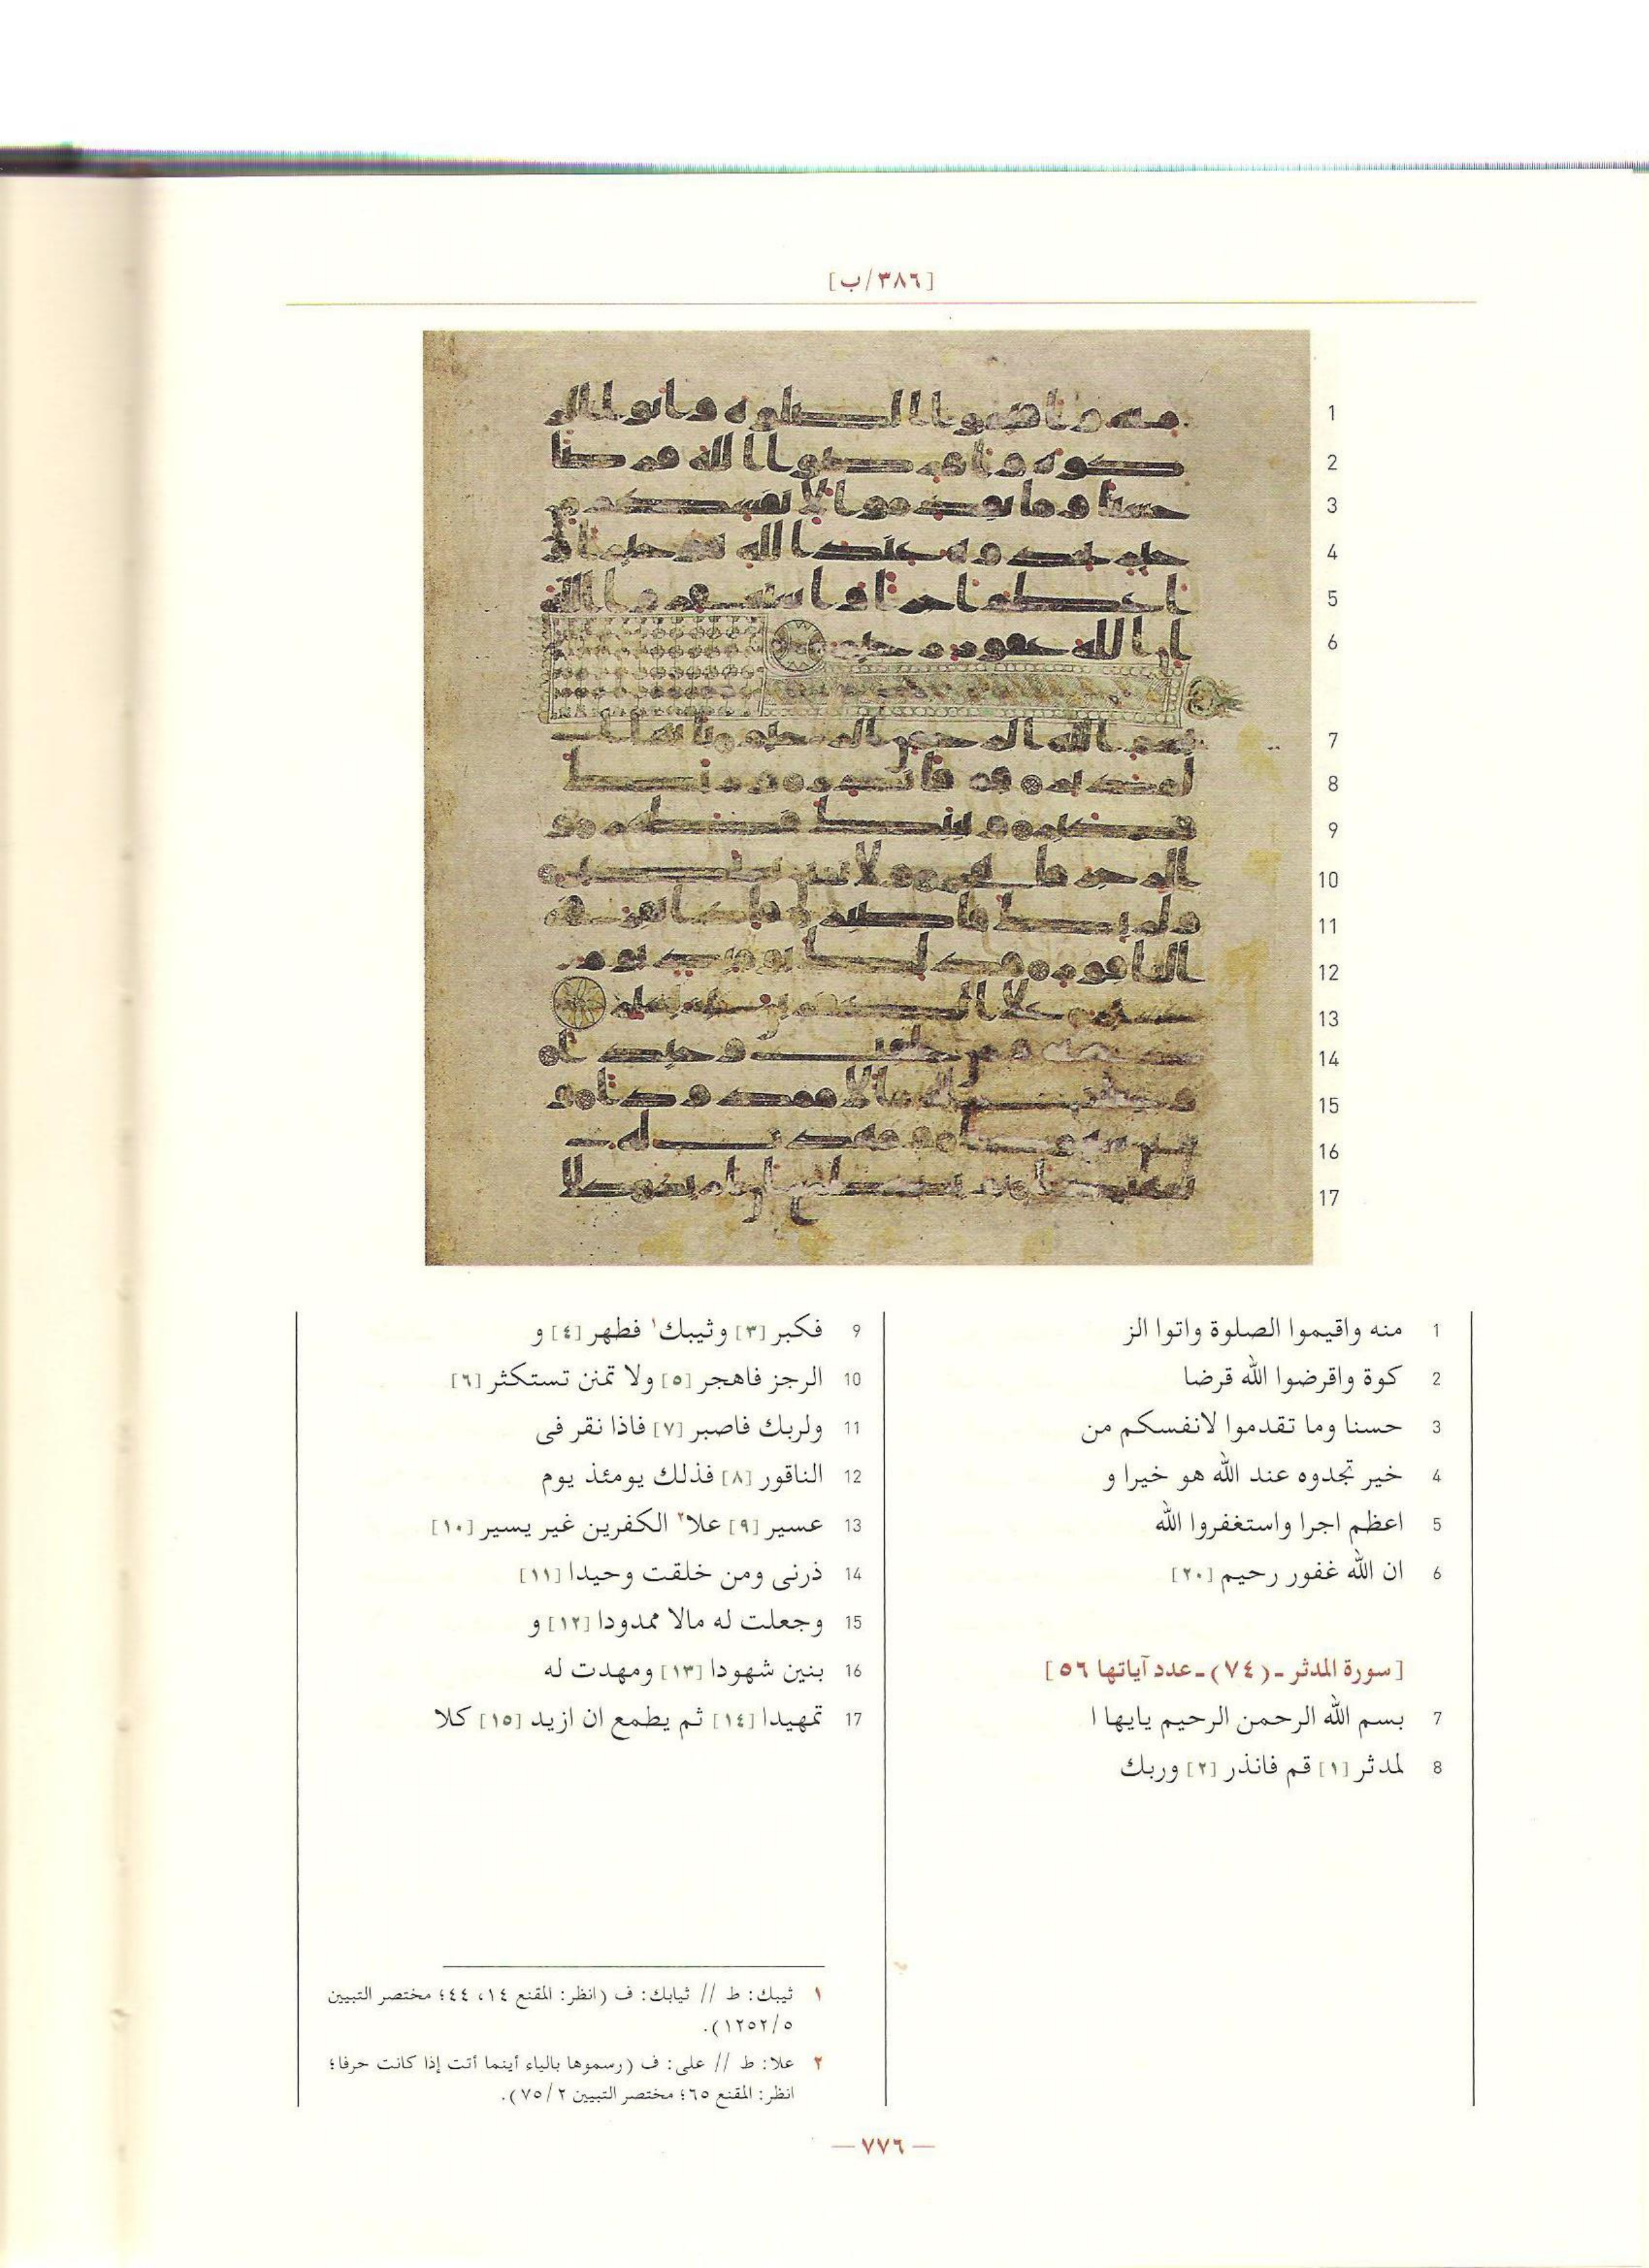 [٣٨٦/ب]
1 منه واقيموا الصلوة واتوا الز
2 كوة واقرضوا الله قرضا
3 حسنا وما تقدموا لانفسكم من
4 خير تجدوه عند الله هو خيرا و
5 اعظم اجرا واستغفروا الله
6 ان الله غفور رحيم [٢٠]
[سورة المدثر ـ (٧٤) ـ عدد آياتها ٥٦]
7 بسم الله الرحمن الرحيم يايها ا
8 لمدثر [١] قم فانذر [٢] وربك
9 فكبر [٣] وثيبك١ فطهر [٤] و
10 الرجز فاهجر [٥] ولا تمنن تستكثر [٦]
11 ولربك فاصبر [٧] فاذا نقر فى
12 الناقور [٨] فذلك يومئذ يوم
13 عسير [٩] علا٢ الكفرين غير يسير [١٠]
14 ذرنى ومن خلقت وحيدا [١١]
15 وجعلت له مالا ممدودا [١٢] و
16 بنين شهودا [١٣] ومهدت له
17 تمهيدا [١٤] ثم يطمع ان ازيد [١٥] كلا
١ ثيبك: ط // ثيابك: ف (انظر: المقنع ١٤، ٤٤؛ مختصر التبيين
٥/١٢٥٢).
٢ علا: ط // على: ف (رسموها بالياء أينما أتت إذا كانت حرفا؛
انظر: المقنع ٦٥؛ مختصر التبيين ٢/٧٥).
— ٧٧٦ —